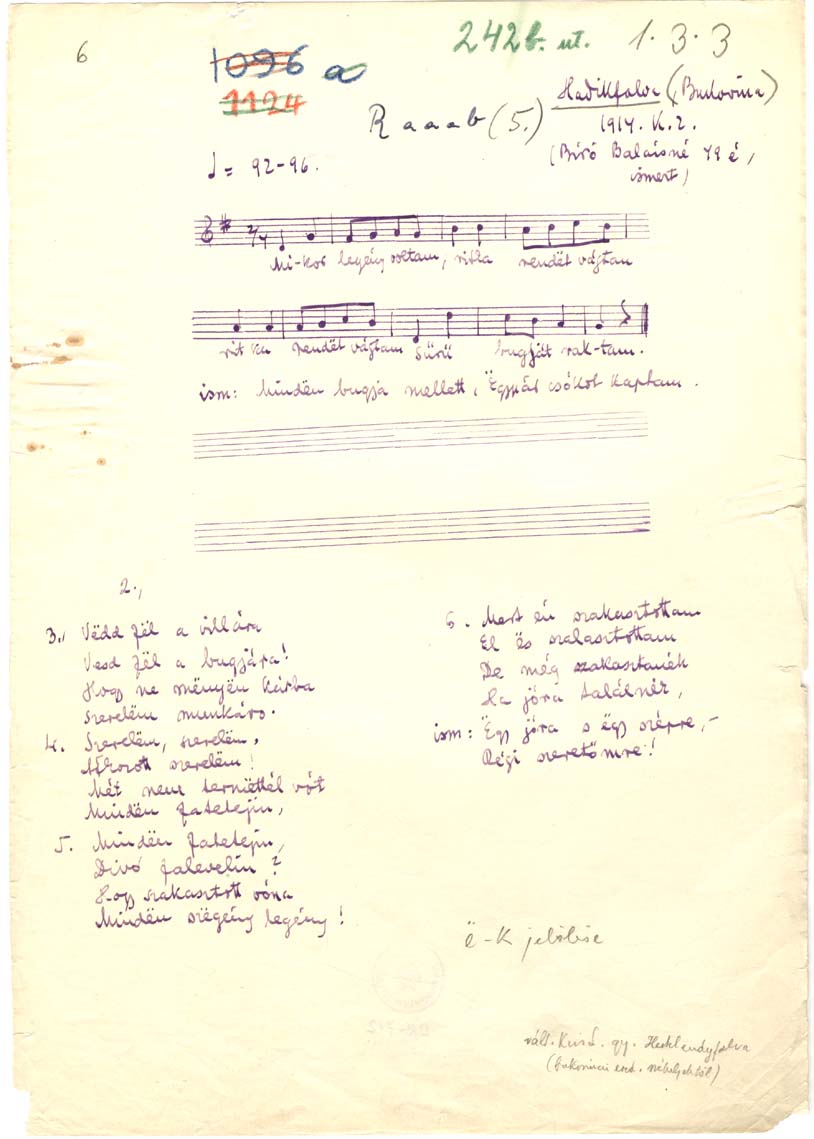 6
1096 a
1124
242b. ut. 1.3.3
Hadikfalva (Bukovina)
R a a a b (5.)
1914. K. Z.
(Bíró Balázsné 49 é,
ismert)
♩ = 92-96.
2/4
Mi-kor legény voltam, ritka rendët vágtam
rit ka rendët vágtam Sűrű bugját rak-tam.
ism: Mindën bugja mellett, Ëgypár csókot kaptam.
2.,
3., Vëdd fël a villára
Vesd fël a bugjára!
Hogy ne mënyën kárba
szerelëm munkáro.
4. Szerelëm, szerelëm,
Átkozott szerelëm!
Mét nem termëttél vót
Mindën fatetejin,
5. Mindën fatetejin,
Divó falevelin?
Hogy szakasztott vóna
Mindën szëgény legény!
6. Mert én szakasztottam
El és szalasztottam
De még szakasztanék
Ha jóra találnék,
ism: Ëgy jóra s ëgy szépre,-
Régi szeretőmre!
ë-k jelölése
vált. Kissá. gy.
(bukovinai erd.